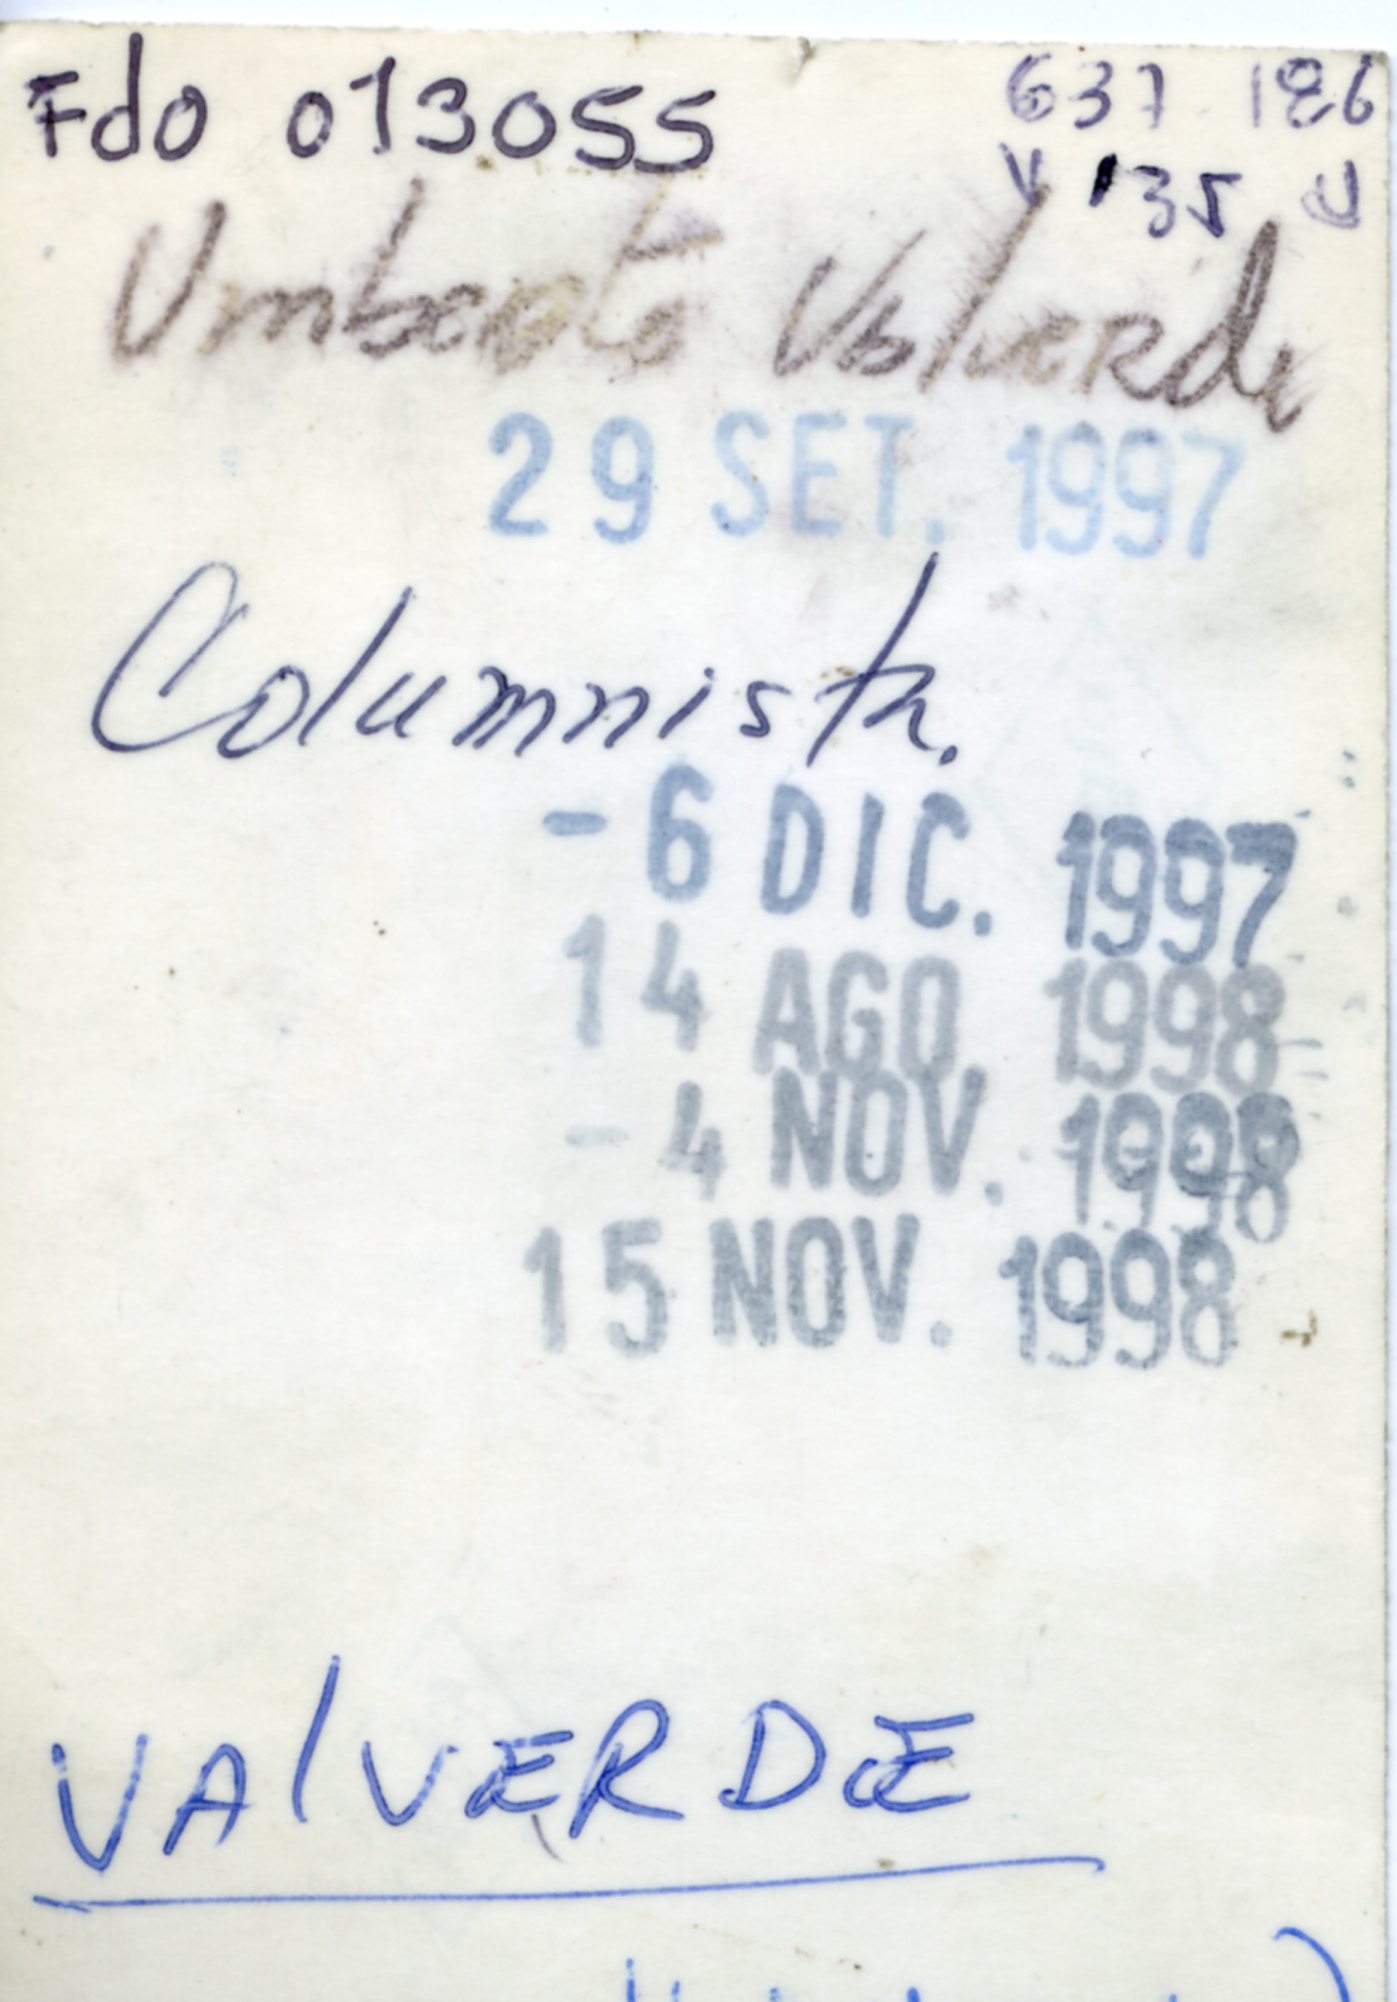 Fdo 013055
637 186
V 135 U
Umberto Valverde
29 SET. 1997
Columnista.
- 6 DIC. 1997
14 AGO. 1998
- 4 NOV. 1998
15 NOV. 1998
VAlVERDE